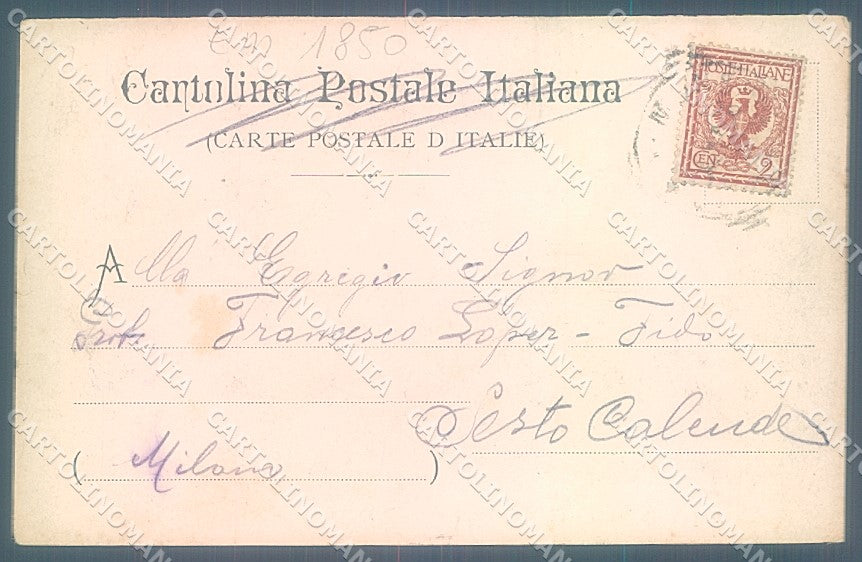 1850
Cartolina Postale Italiana
(CARTE POSTALE D ITALIE)
POSTE ITALIANE
CEN. 2
Alla Egregio Signor
Prof. Francesco Loper - Fido
Sesto Calende
(Milano)
CARTOLINOMANIA